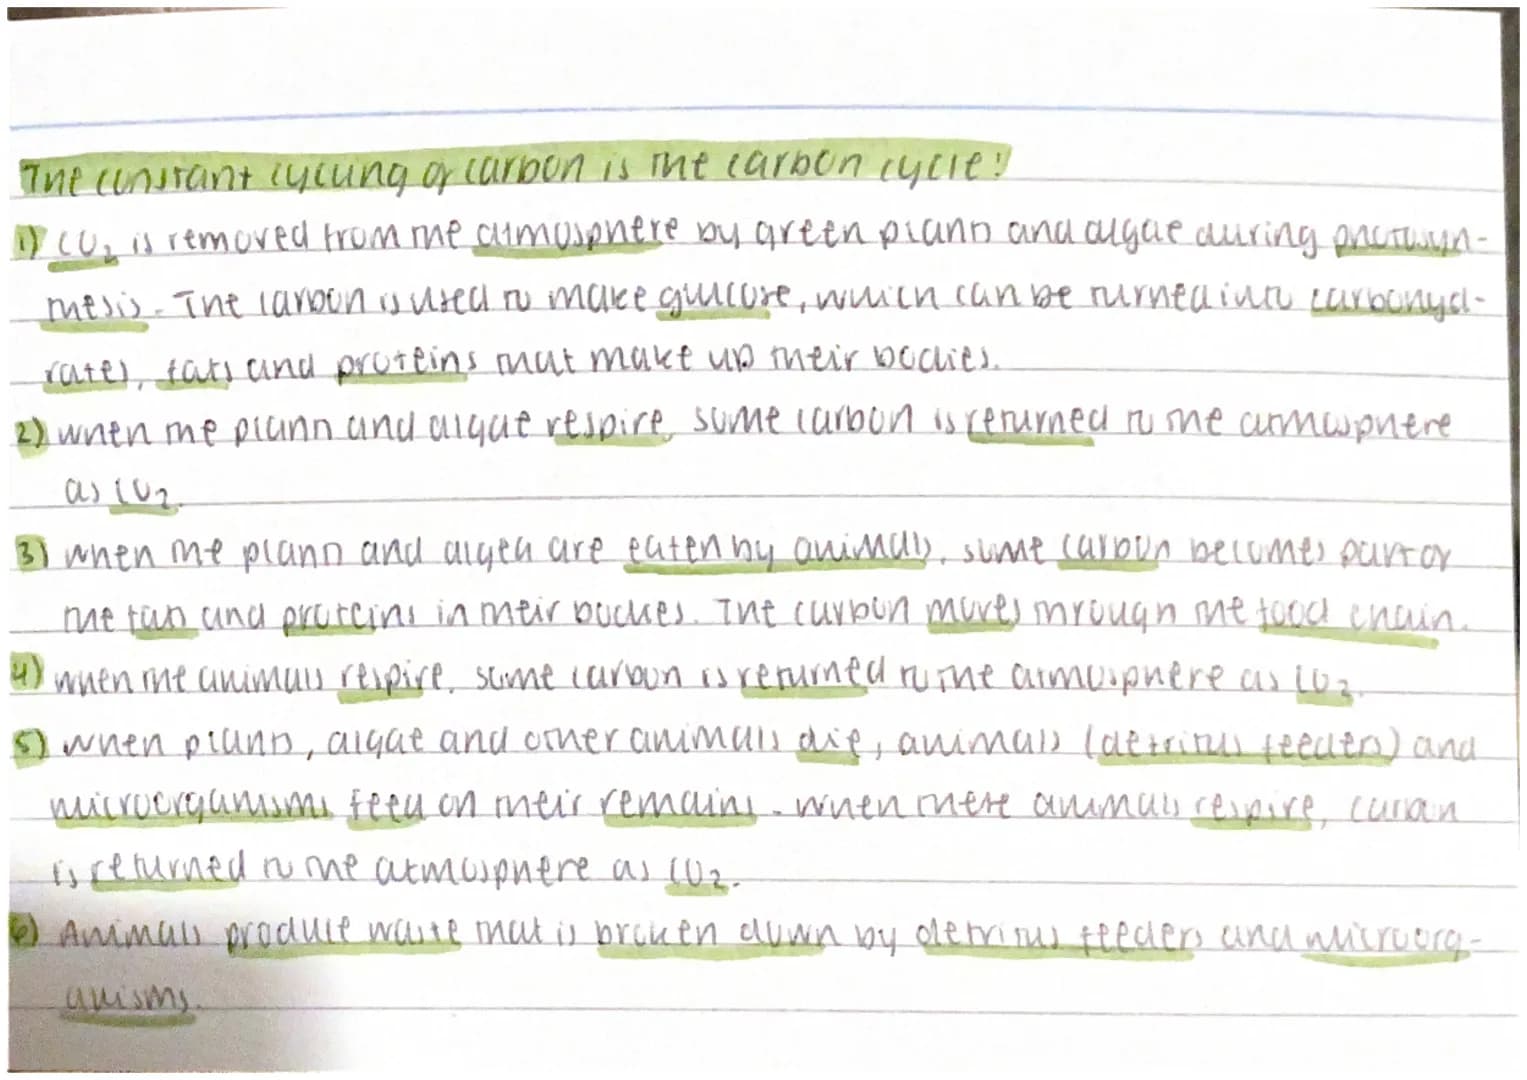 The constant cycling of carbon is the carbon cycle!
1) CO₂ is removed from the atmosphere by green plants and algae during photosyn-
thesis. The carbon is used to make glucose, which can be turned into carbohyd-
rates, fats and proteins that make up their bodies.
2) when the plants and algae respire some carbon is returned to the atmosphere
as CO₂.
3) when the plants and algea are eaten by animals, some carbon becomes part of
the fats and proteins in their bodies. The carbon moves through the food chain.
4) when the animals respire, some carbon is returned to the atmosphere as CO₂.
5) when plants, algae and other animals die, animals (detritus feeders) and
microorganisms feed on their remains. when these animals respire, carbon
is returned to the atmosphere as CO₂.
6) Animals produce waste that is broken down by detritus feeders and microorg-
anisms.